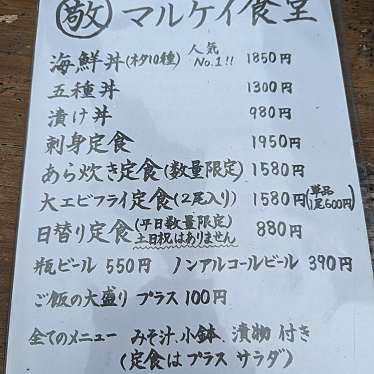 敬 マルケイ食堂
海鮮丼(ネタ10種) 人気No.1!! 1850円
五種丼 1300円
漬け丼 980円
刺身定食 1950円
あら炊き定食(数量限定) 1580円
大エビフライ定食(2尾入り) 1580円(単品1尾600円)
日替り定食(平日数量限定 土日祝はありません) 880円
瓶ビール 550円 ノンアルコールビール 390円
ご飯の大盛り プラス 100円
全てのメニュー みそ汁、小鉢、漬物 付き
(定食は プラス サラダ)